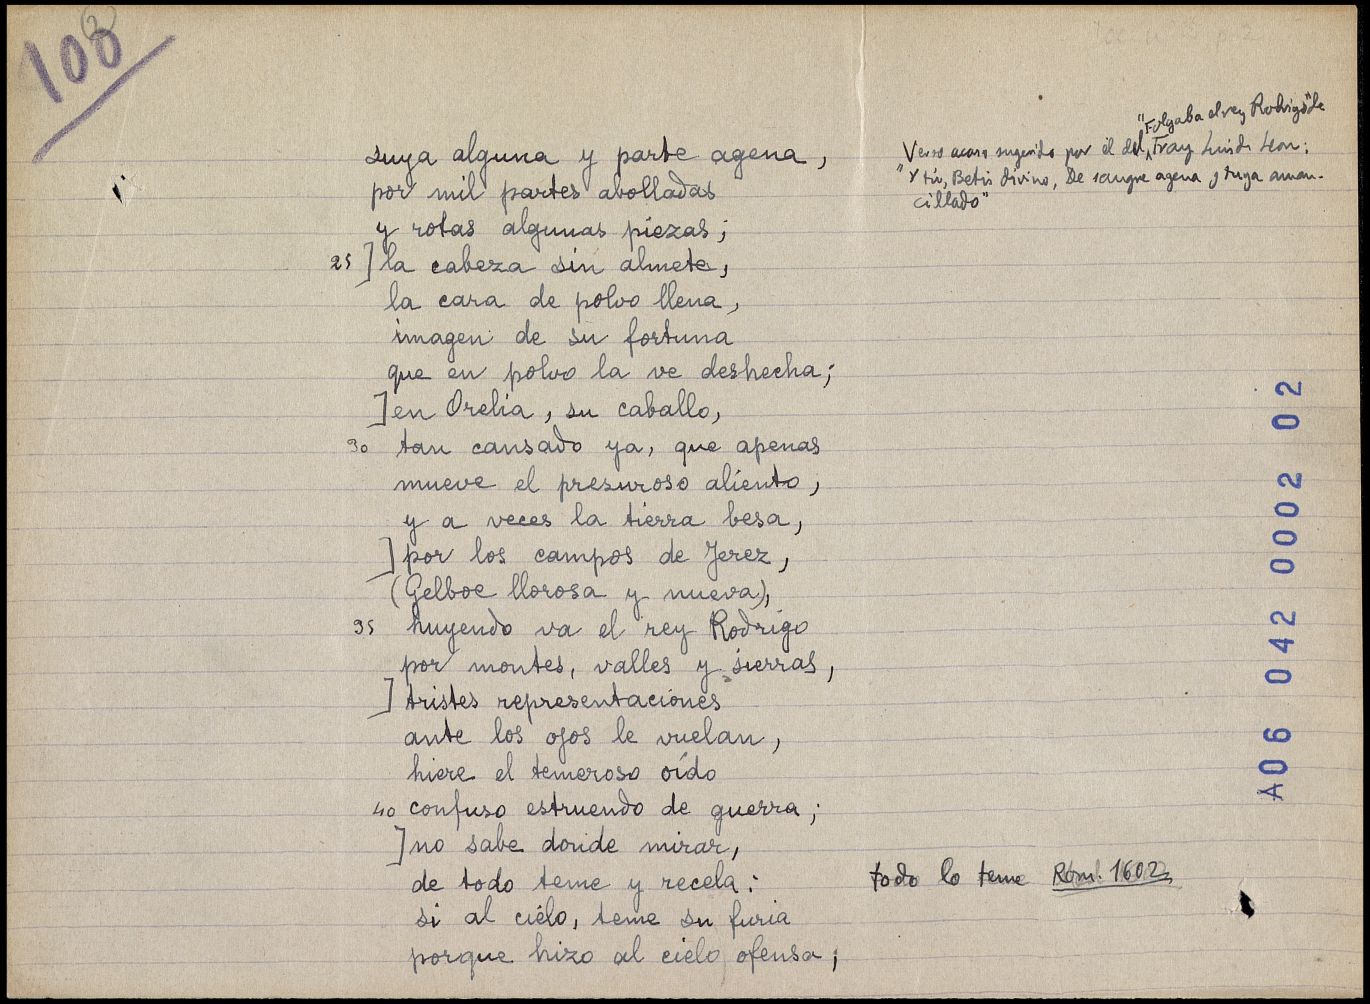 108
2
suya alguna y parte agena,
por mil partes abolladas
y rotas algunas piezas;
25 ] la cabeza sin almete,
la cara de polvo llena,
imagen de su fortuna
que en polvo la ve deshecha;
] en Orelia, su caballo,
30 tan cansado ya, que apenas
mueve el presuroso aliento,
y a veces la tierra besa,
] por los campos de Jerez,
(Gelboe llorosa y nueva),
35 huyendo va el rey Rodrigo
por montes, valles y sierras,
] tristes representaciones
ante los ojos le vuelan,
hiere el temeroso oído
40 confuso estruendo de guerra;
] no sabe donde mirar,
de todo teme y recela:
si al cielo, teme su furia
porque hizo al cielo ofensa;
"Folgaba el rey Rodrigo" de
Verso acaso sugerido por el del Fray Luis de Leon:
"Y tú, Betis divino, De sangre agena y tuya aman-
cillado"
todo lo teme Rom. 1602
A06 042 0002 02